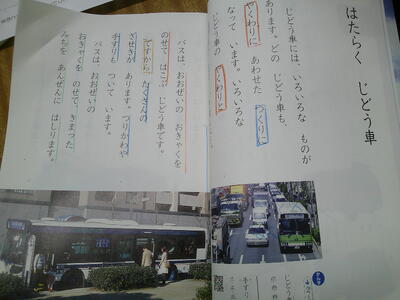 はたらく じどう車
じどう車には、いろいろな ものが
あります。どの じどう車も、
やくわりに あわせた つくりに
なって います。いろいろな
じどう車の やくわりと
バスは、おおぜいの おきゃくを
のせて はこぶ じどう車です。
ですから、たくさんの
ざせきが あります。つりかわや
手すりも ついて います。
バスは、おおぜいの
おきゃくを のせて、きまった
みちを あんぜんに はしります。